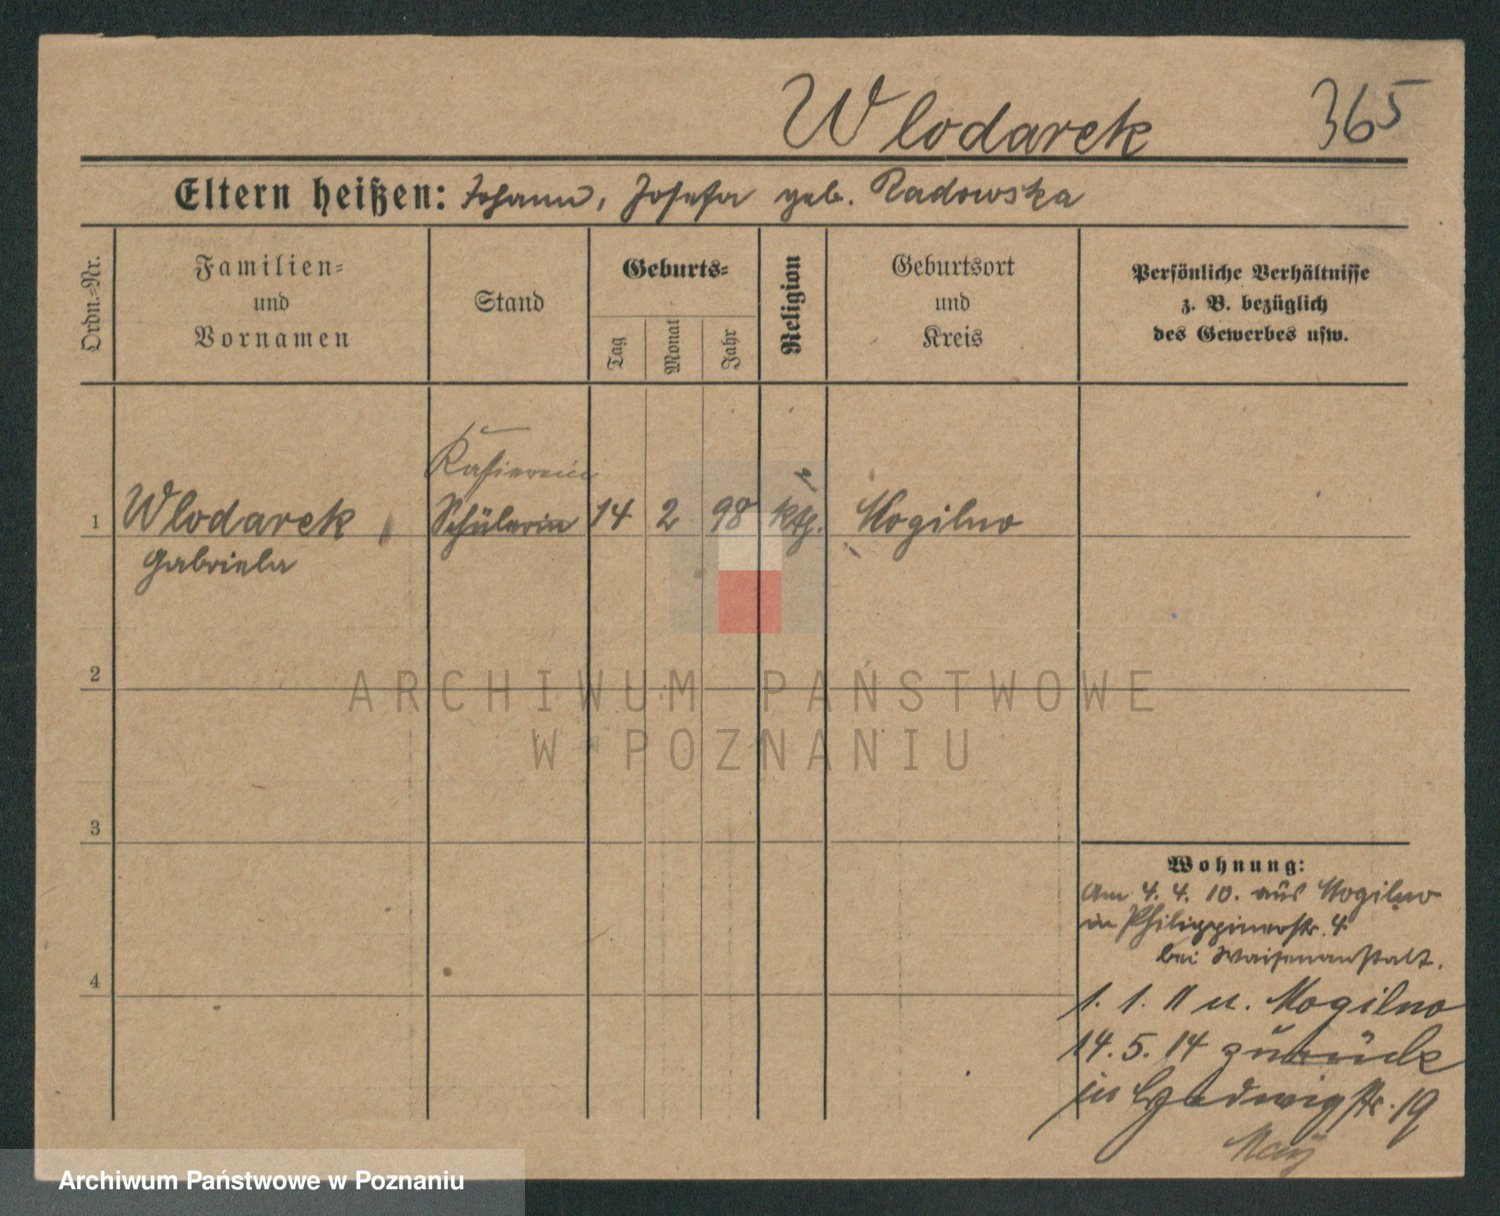 Wlodarek 365
Eltern heißen: Johann, Josefa geb. Radowska
Ordn.-Nr.
Familien-
und
Vornamen
Stand
Geburts-
Tag
Monat
Jahr
Religion
Geburtsort
und
Kreis
Persönliche Verhältnisse
z. B. bezüglich
des Gewerbes usw.
Kassiererin
1 Wlodarek, Schülerin 14 2 98 kth. Mogilno
Gabriela
2
ARCHIWUM PAŃSTWOWE
W POZNANIU
3
Wohnung:
Am 4. 4. 10. aus Mogilno
in Philippinerstr. 4
bei Waisenanstalt.
4
1. 1. 11 n. Mogilno
14. 5. 14 zurück
in Hedwigstr. 19
Archiwum Państwowe w Poznaniu